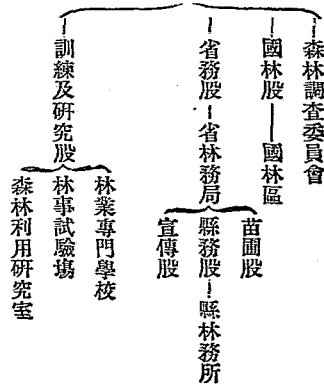 森林調查委員會
國林股——國林區
省務股—省林務局
苗圃股
縣務股—縣林務所
宣傳股
訓練及研究股
林業專門學校
林事試驗場
森林利用研究室